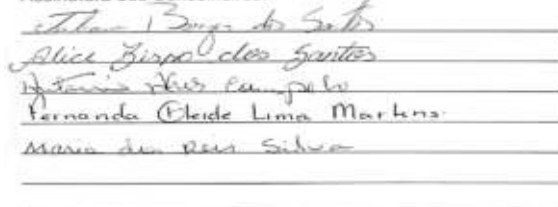 Borges dos Santos
Alice Bispo dos Santos
Antonio Alves Campelo
Fernanda Cleide Lima Martins.
Maria dos Reis Silva